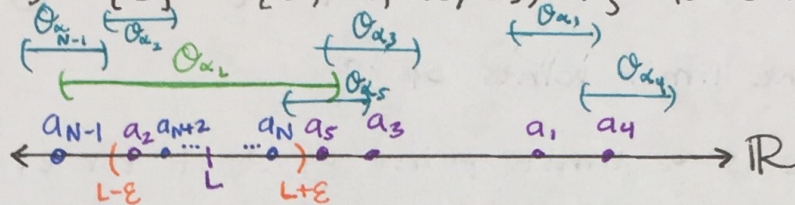 O_{α_{N-1}} O_{α_2} O_{α_3} O_{α_1}
O_{α_L} O_{α_5} O_{α_4}
a_{N-1} a_2 a_{N+2} ... ... a_N a_5 a_3 a_1 a_4 ℝ
L-ε L L+ε